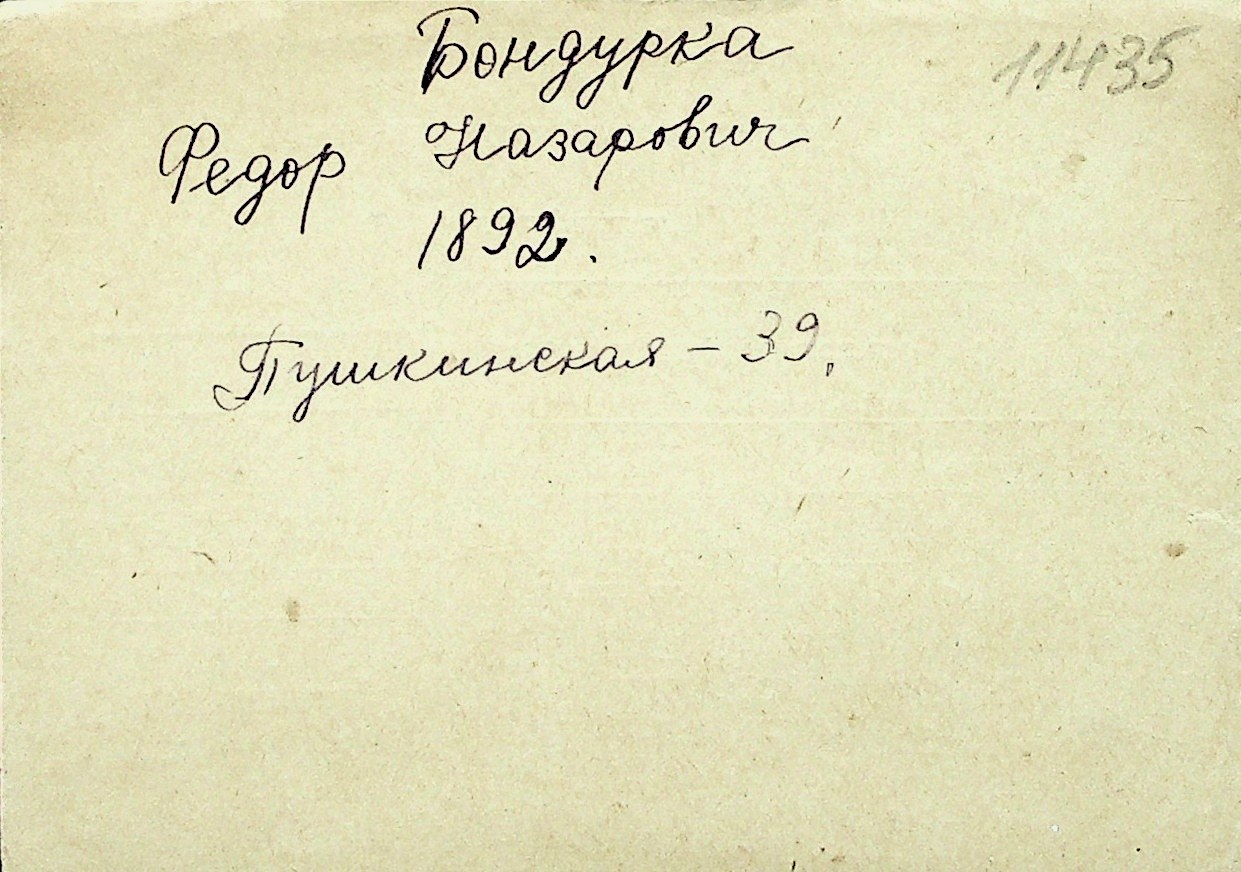 Бондурка
11435
Федор Назарович
1892.
Пушкинская – 39.